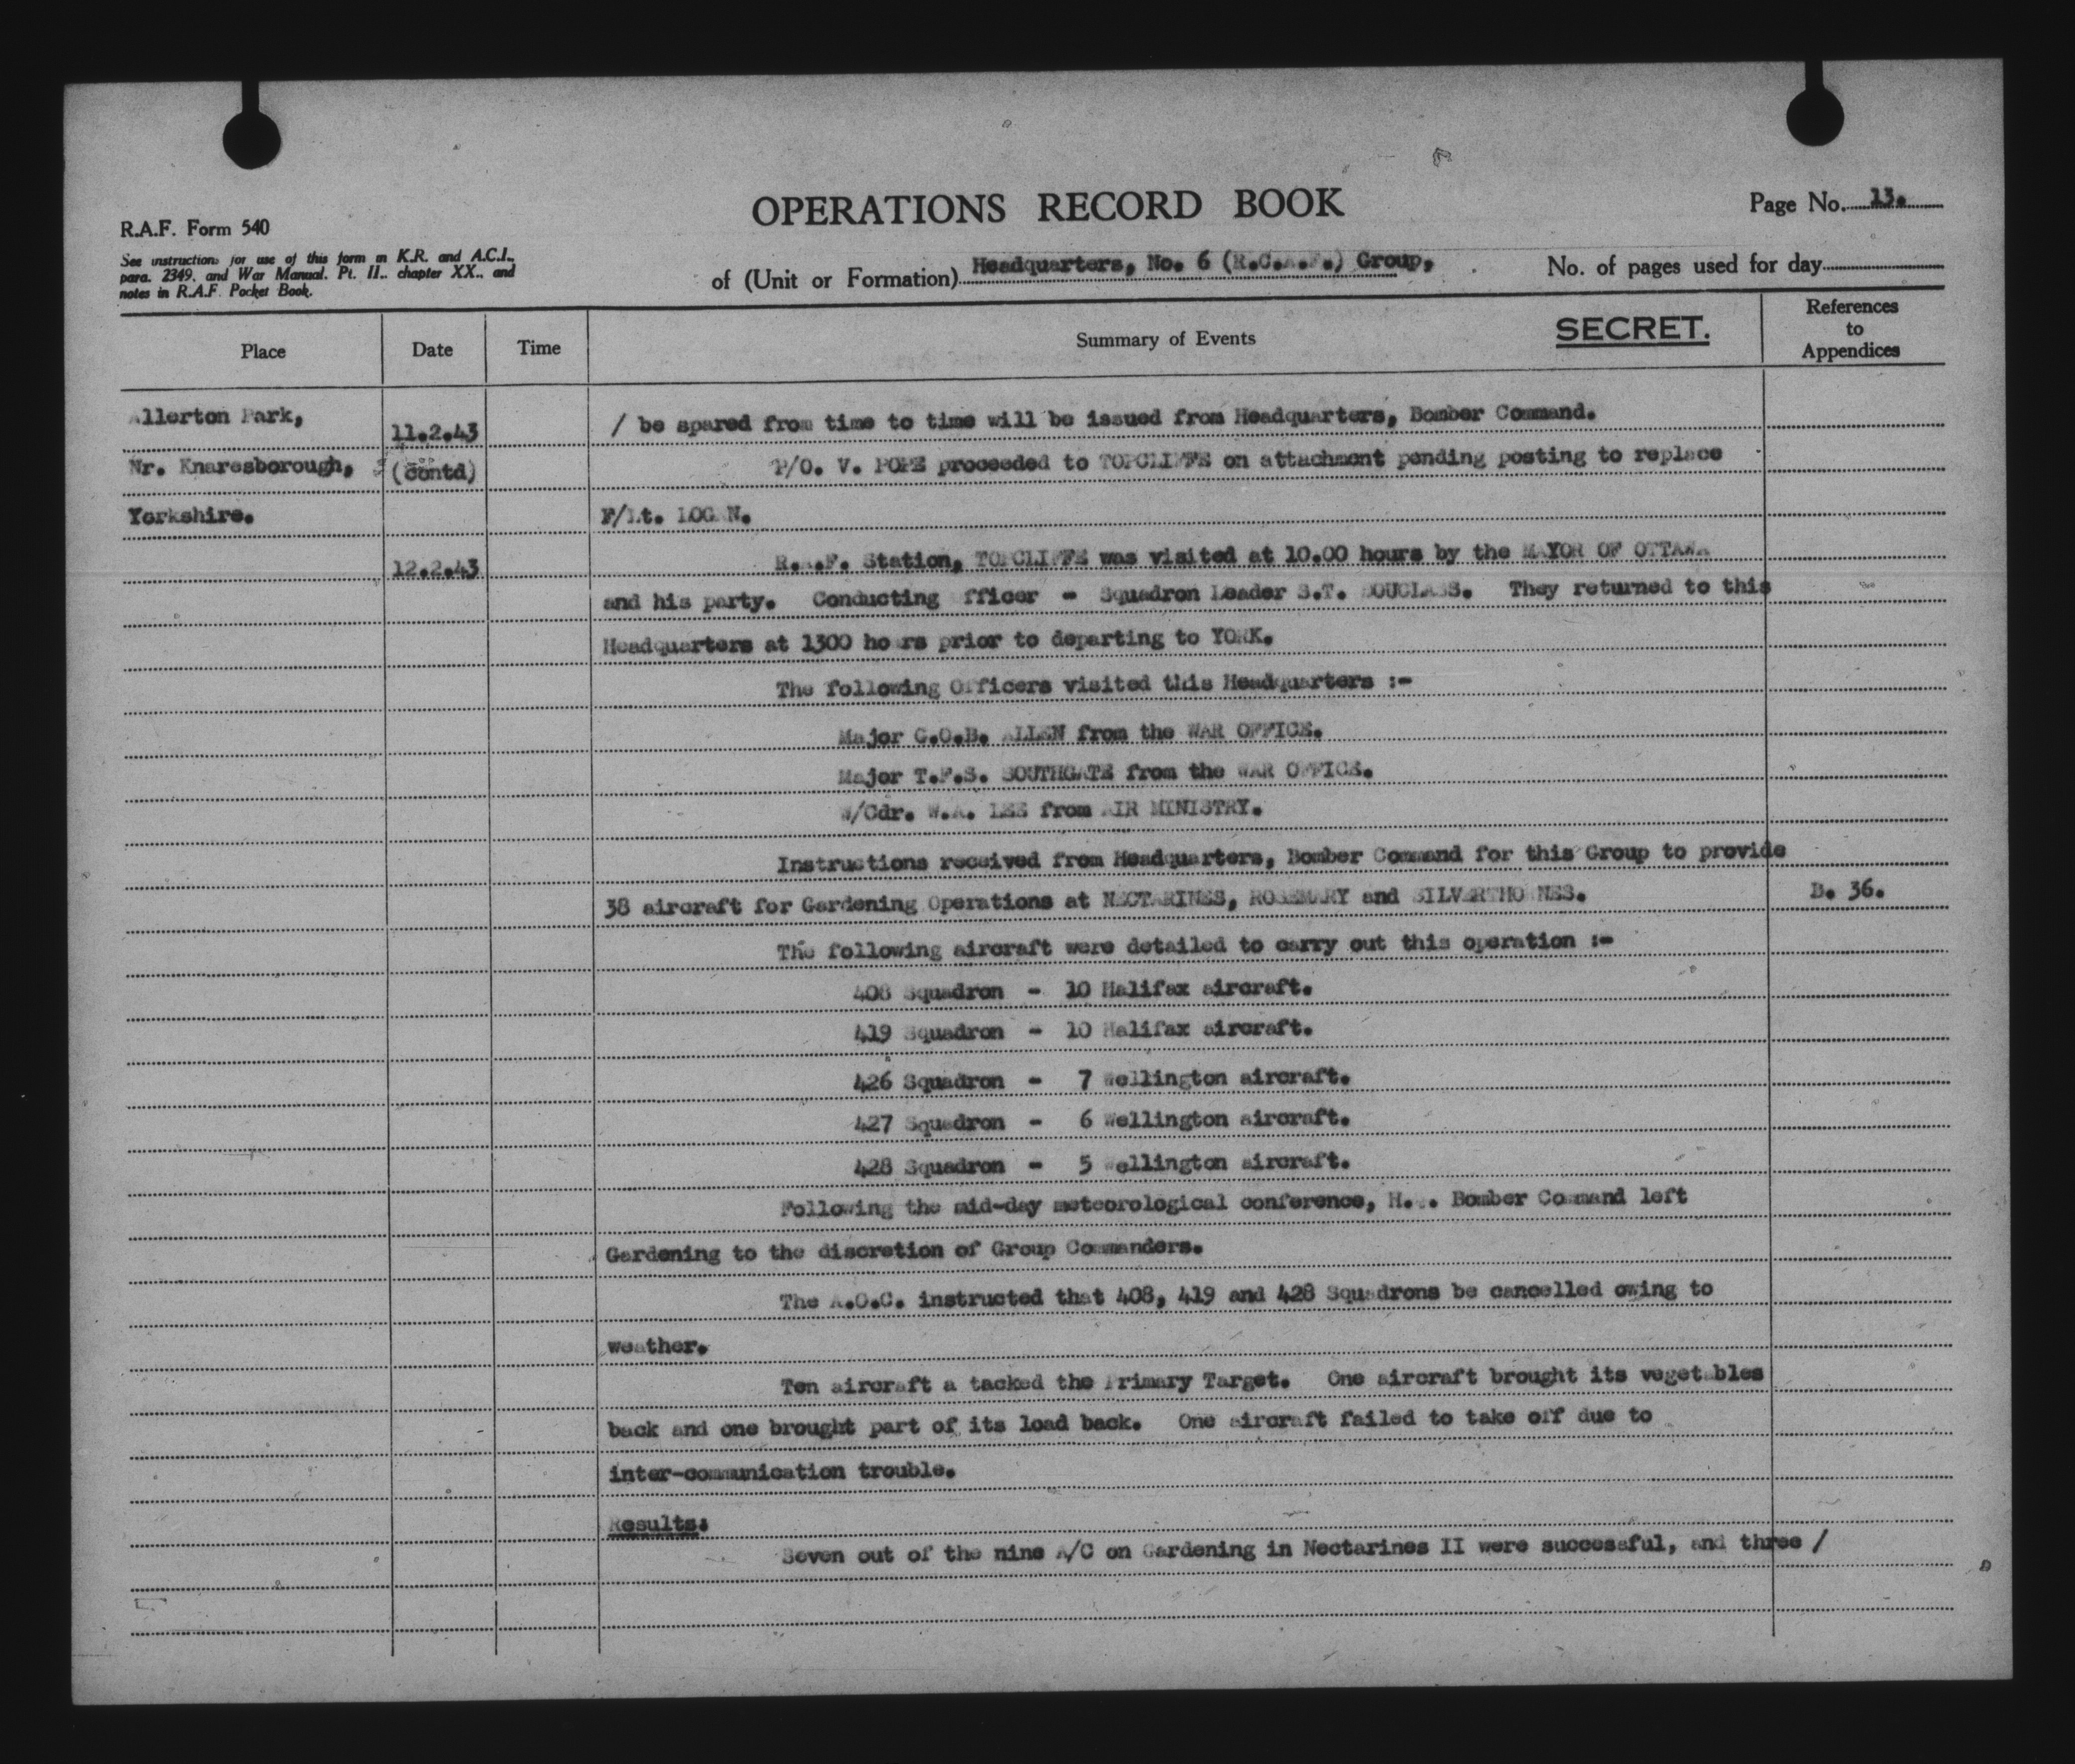 OPERATIONS RECORD BOOK
Page No. 13.
R.A.F. Form 540
See instructions for use of this form in K.R. and A.C.I.,
para. 2349, and War Manual, Pt. II., chapter XX., and
notes in R.A.F. Pocket Book.
of (Unit or Formation) Headquarters, No. 6 (R.C.A.F.) Group,
No. of pages used for day
Place
Date
Time
Summary of Events
SECRET.
References
to
Appendices
Allerton Park,
11.2.43
/ be spared from time to time will be issued from Headquarters, Bomber Command.
Nr. Knaresborough,
(contd)
P/O. V. POPE proceeded to TOPCLIFFE on attachment pending posting to replace
Yorkshire.
F/Lt. LOGAN.
12.2.43
R.A.F. Station, TOPCLIFFE was visited at 10.00 hours by the MAYOR OF OTTAWA
and his party. Conducting Officer - Squadron Leader S.T. DOUGLASS. They returned to this
Headquarters at 1300 hours prior to departing to YORK.
The following Officers visited this Headquarters :-
Major G.O.B. ALLEN from the WAR OFFICE.
Major T.F.S. SOUTHGATE from the WAR OFFICE.
W/Cdr. W.A. LEE from AIR MINISTRY.
Instructions received from Headquarters, Bomber Command for this Group to provide
38 aircraft for Gardening Operations at NECTARINES, ROSEMARY and SILVERTHORNES.
B. 36.
The following aircraft were detailed to carry out this operation :-
408 Squadron - 10 Halifax aircraft.
419 Squadron - 10 Halifax aircraft.
426 Squadron - 7 Wellington aircraft.
427 Squadron - 6 Wellington aircraft.
428 Squadron - 5 Wellington aircraft.
Following the mid-day meteorological conference, H.Q. Bomber Command left
Gardening to the discretion of Group Commanders.
The A.O.C. instructed that 408, 419 and 428 Squadrons be cancelled owing to
weather.
Ten aircraft attacked the Primary Target. One aircraft brought its vegetables
back and one brought part of its load back. One aircraft failed to take off due to
inter-communication trouble.
Results:
Seven out of the nine A/C on Gardening in Nectarines II were successful, and three /